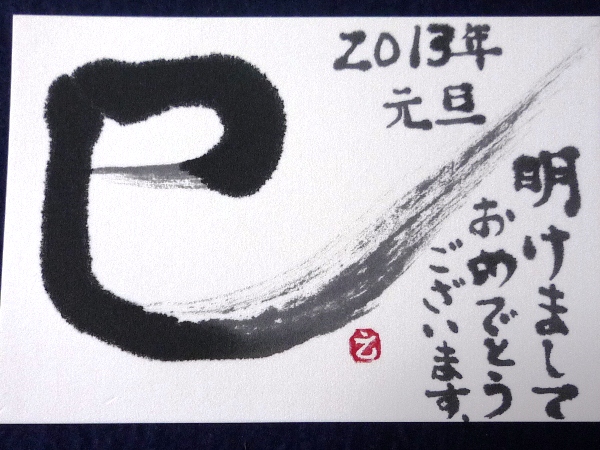 巳
2013年
元旦
明けまして
おめでとう
ございます。
え